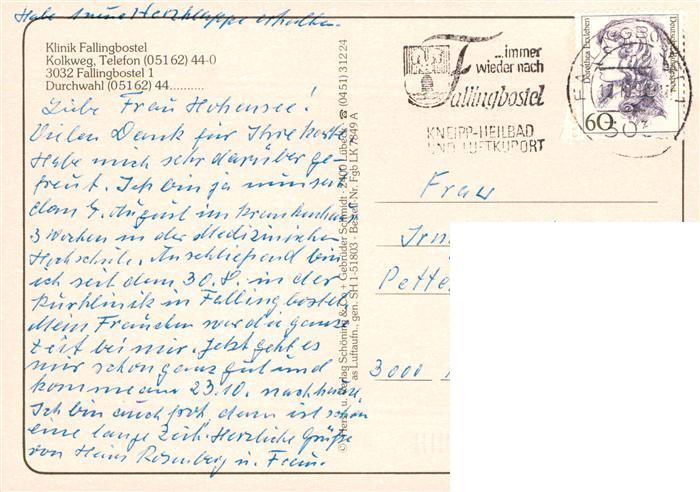 Habe neue Herzklappe erhalten.
Klinik Fallingbostel
Kolkweg, Telefon (05162) 44-0
3032 Fallingbostel 1
Durchwahl (05162) 44..........
Liebe Frau Hohensee!
Vielen Dank für Ihre Karte
Habe mich sehr darüber ge-
freut. Ich bin ja nun seit
dem 4. August im Krankenhaus
3 Wochen in der Medizinischen
Hochschule. Anschließend bin
ich seit dem 30.8. in der
Kurklinik in Fallingbostel
Mein Frauchen war die ganze
Zeit bei mir. Jetzt geht es
mir schon ganz gut und
komme am 23.10. nach hause.
Ich bin auch froh, denn ist schon
eine lange Zeit. Herzliche Grüße
von Heinz Rosenberg u. Frau.
© Herst. u. Verlag Schöning & Co + Gebrüder Schmidt · 2400 Lübeck ☎ (0451) 31224
as Luftaufn., gen. SH 1-51803 · Bestell-Nr. Fgb LK 7849 A
...immer
wieder nach
Fallingbostel
KNEIPP-HEILBAD
UND LUFTKURORT
Dorothea Erxleben
Deutsche Bundespost
60
Frau
Irm
Pette
3000